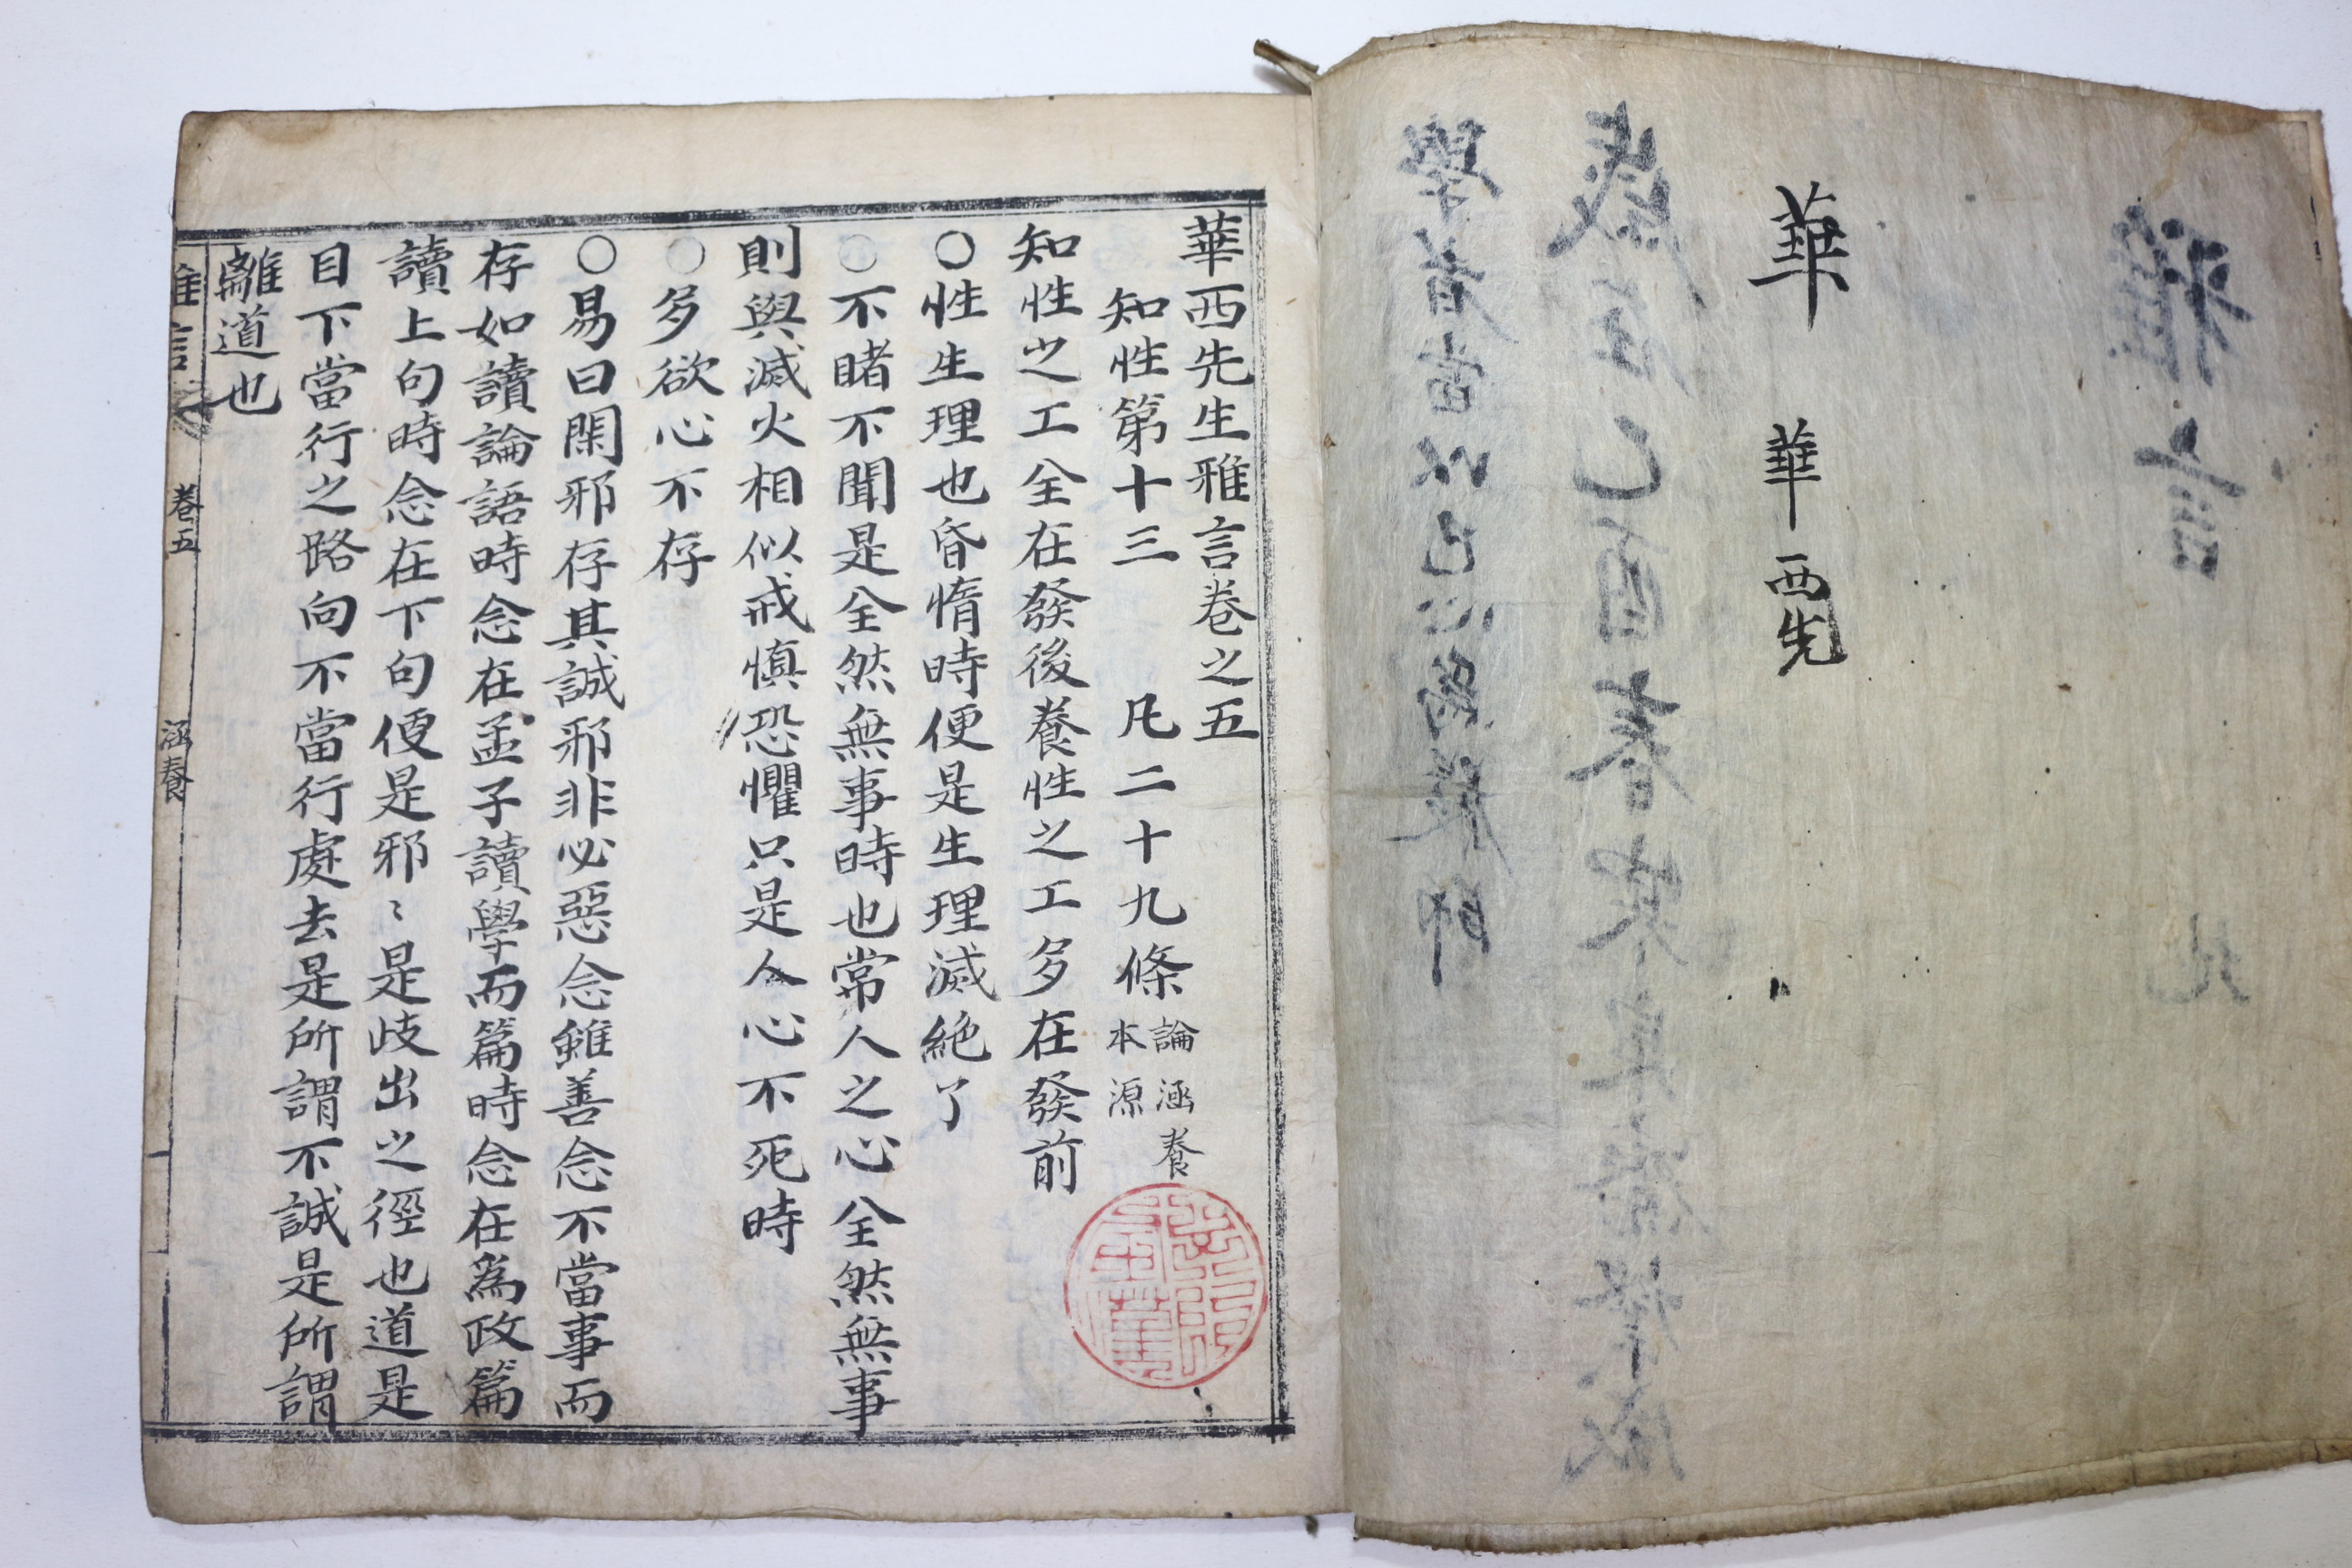 華
華西先
華西先生雅言卷之五
知性第十三 凡二十九條 論涵養
本源
知性之工全在發後養性之工多在發前
○性生理也昏惰時便是生理滅絶了
○不睹不聞是全然無事時也常人之心全然無事
則與滅火相似戒愼恐懼只是人心不死時
○多欲心不存
○易曰閑邪存其誠邪非必惡念雖善念不當事而
存如讀論語時念在孟子讀學而篇時念在爲政篇
讀上句時念在下句便是邪〻是歧出之徑也道是
目下當行之路向不當行處去是所謂不誠是所謂
離道也
雅言 卷五 涵養